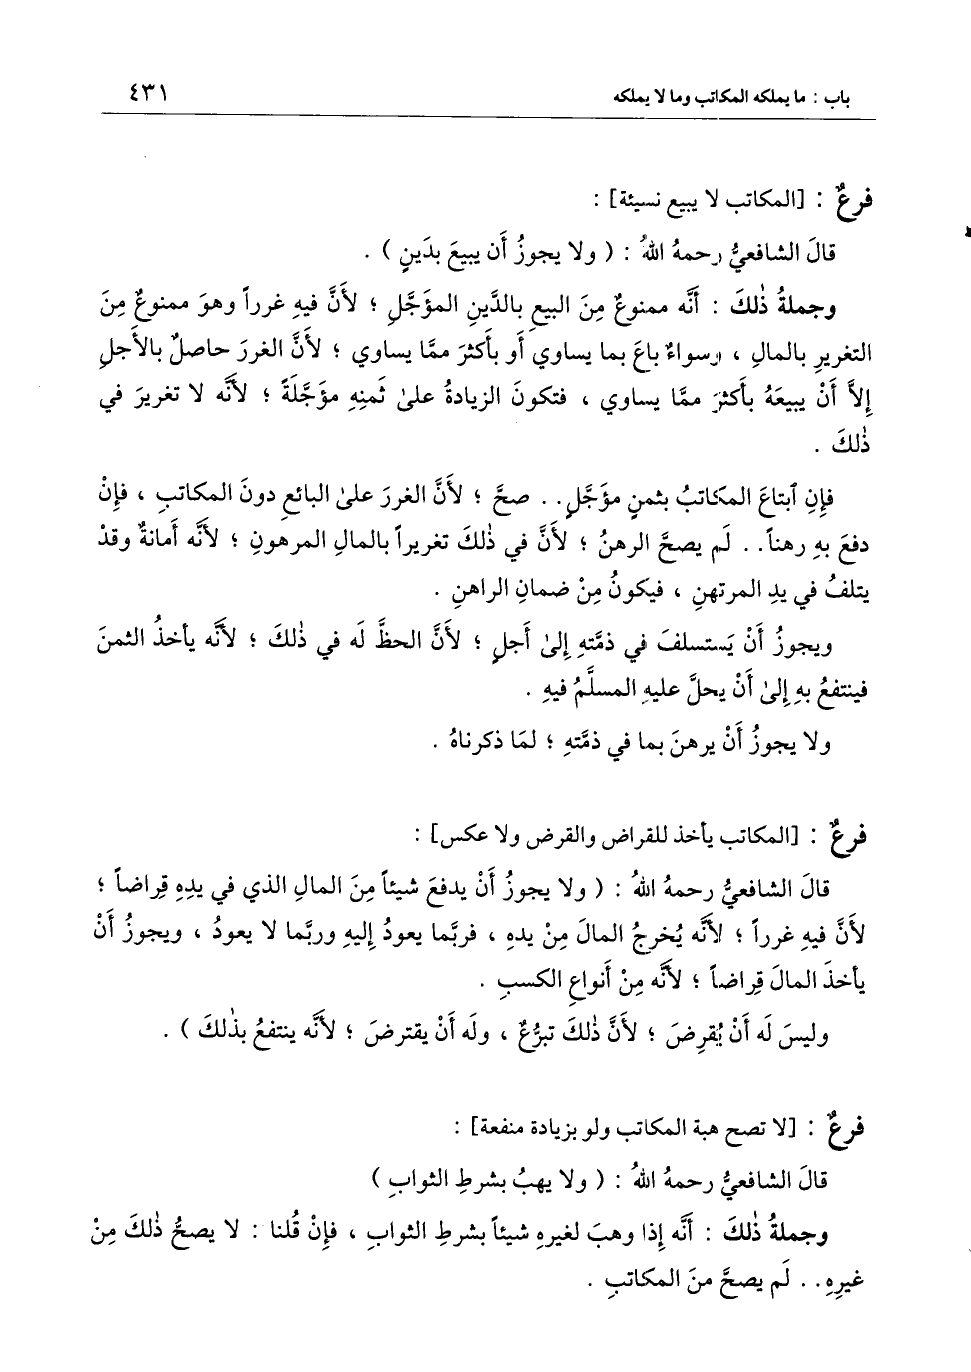 باب : ما يملكه المكاتب وما لا يملكه ٤٣١
فرعٌ : [المكاتب لا يبيع نسيئة] :
قالَ الشافعيُّ رحمهُ اللهُ : ( ولا يجوزُ أن يبيعَ بدَينٍ ) .
وجملةُ ذٰلكَ : أنَّه ممنوعٌ مِنَ البيعِ بالدَّينِ المؤجَّلِ ؛ لأنَّ فيهِ غرراً وهوَ ممنوعٌ مِنَ
التغريرِ بالمالِ ، وسواءٌ باعَ بما يساوي أو بأكثرَ ممَّا يساوي ؛ لأنَّ الغررَ حاصلٌ بالأجلِ
إلاَّ أنْ يبيعَهُ بأكثرَ ممَّا يساوي ، فتكونَ الزيادةُ علىٰ ثمنِهِ مؤجَّلةً ؛ لأنَّه لا تغريرَ في
ذٰلكَ .
فإنِ ٱبتاعَ المكاتبُ بثمنٍ مؤجَّلٍ.. صحَّ ؛ لأنَّ الغررَ علىٰ البائعِ دونَ المكاتبِ ، فإنْ
دفعَ بهِ رهناً.. لَم يصحَّ الرهنُ ؛ لأنَّ في ذٰلكَ تغريراً بالمالِ المرهونِ ؛ لأنَّه أمانةٌ وقدْ
يتلفُ في يدِ المرتهنِ ، فيكونُ مِنْ ضمانِ الراهنِ .
ويجوزُ أنْ يَستسلفَ في ذمَّتهِ إلىٰ أجلٍ ؛ لأنَّ الحظَّ لَه في ذٰلكَ ؛ لأنَّه يأخذُ الثمنَ
فينتفعُ بهِ إلىٰ أنْ يحلَّ عليهِ المسلَّمُ فيهِ .
ولا يجوزُ أنْ يرهنَ بما في ذمَّتهِ ؛ لمَا ذكرناهُ .
فرعٌ : [المكاتب يأخذ للقراض والقرض ولا عكس] :
قالَ الشافعيُّ رحمهُ اللهُ : ( ولا يجوزُ أنْ يدفعَ شيئاً مِنَ المالِ الذي في يدِهِ قِراضاً ؛
لأنَّ فيهِ غرراً ؛ لأنَّه يُخرجُ المالَ مِنْ يدهِ ، فربَّما يعودُ إليهِ وربَّما لا يعودُ ، ويجوزُ أنْ
يأخذَ المالَ قِراضاً ؛ لأنَّه مِنْ أنواعِ الكسبِ .
وليسَ لَه أنْ يُقرِضَ ؛ لأنَّ ذٰلكَ تبرُّعٌ ، ولَه أنْ يقترضَ ؛ لأنَّه ينتفعُ بذٰلكَ ) .
فرعٌ : [لا تصح هبة المكاتب ولو بزيادة منفعة] :
قالَ الشافعيُّ رحمهُ اللهُ : ( ولا يهبُ بشرطِ الثوابِ )
وجملةُ ذٰلكَ : أنَّه إذا وهبَ لغيرهِ شيئاً بشرطِ الثوابِ ، فإنْ قُلنا : لا يصحُّ ذٰلكَ مِنْ
غيرِهِ.. لَم يصحَّ منَ المكاتبِ .